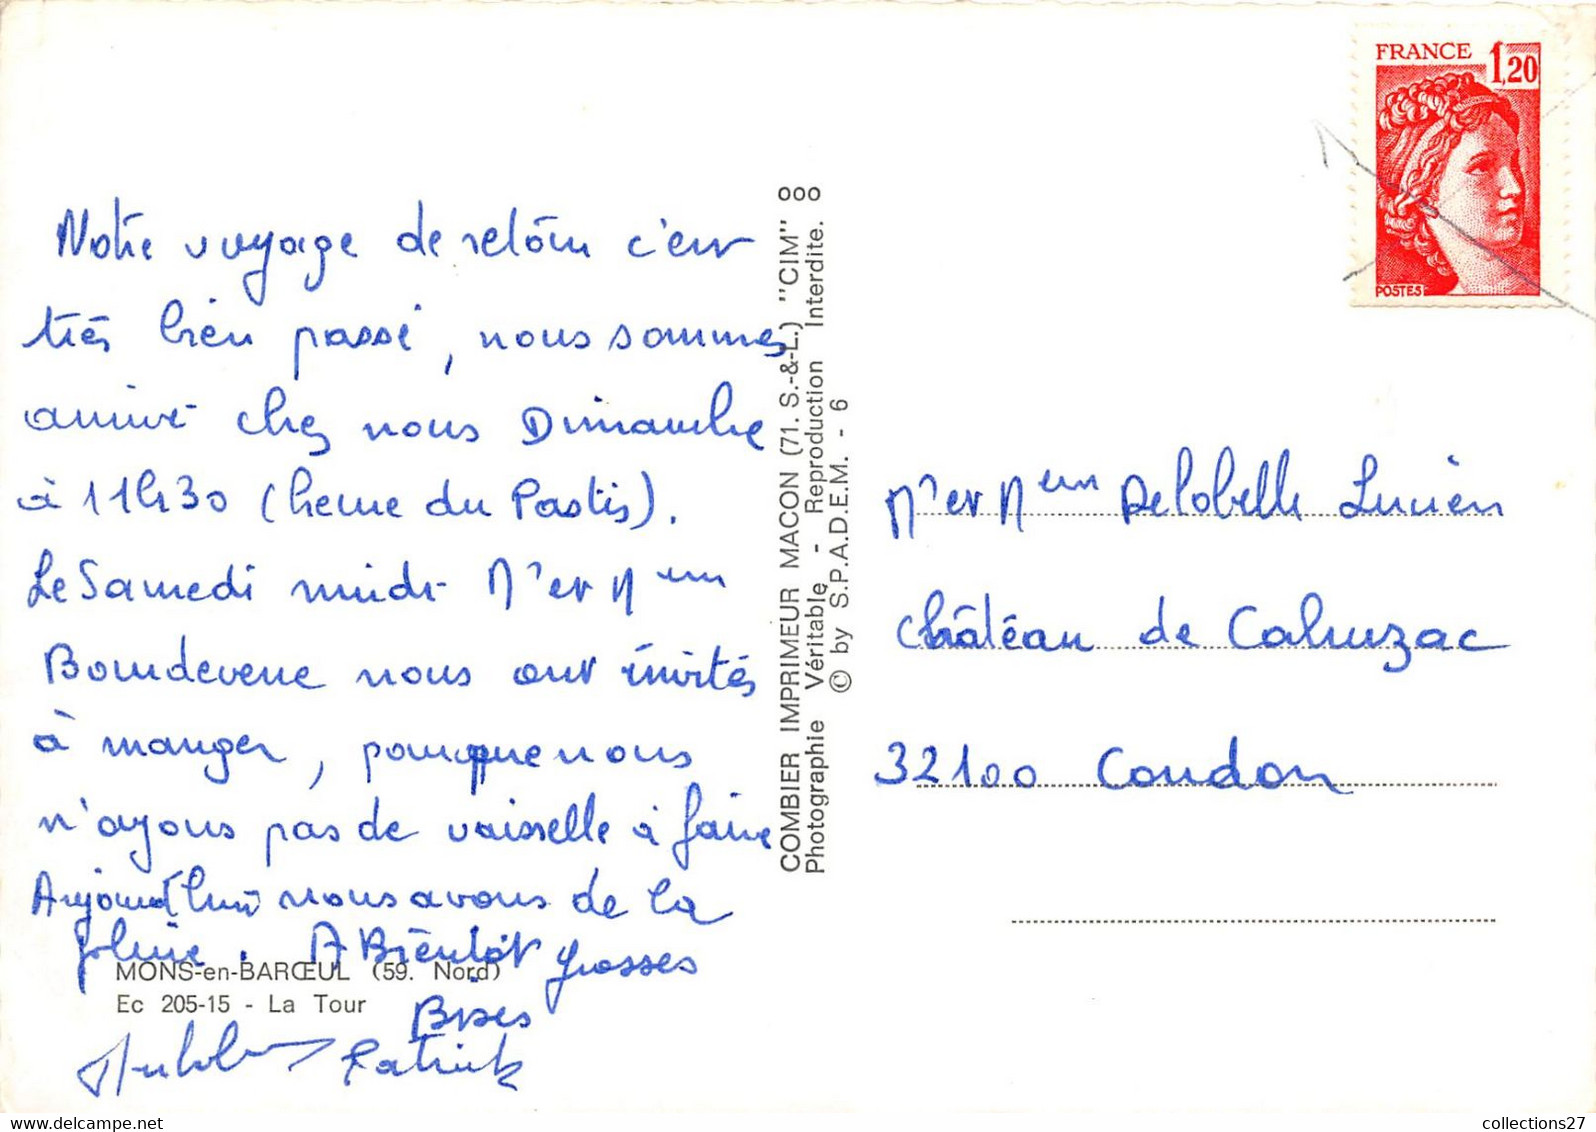 Notre voyage de retour c'est
très bien passé, nous sommes
arrivé chez nous Dimanche
à 11h30 (heure du Pastis).
Le Samedi midi Mr et Mme
nous ont invités
à manger, pourque nous
n'ayons pas de vaisselle à faire
Aujourd'hui nous avons de la
pluie. A Bientôt grosses
Bises
Patrick
MONS-en-BARŒUL (59. Nord)
Ec 205-15 - La Tour
COMBIER IMPRIMEUR MACON (71. S.-&-L.) "CIM" ooo
Photographie Véritable - Reproduction Interdite.
© by S.P.A.D.E.M. - 6
FRANCE 1,20
POSTES
Mr et Mme Delobelle Lucien
Château de Cahuzac
32100 Condom
collections27